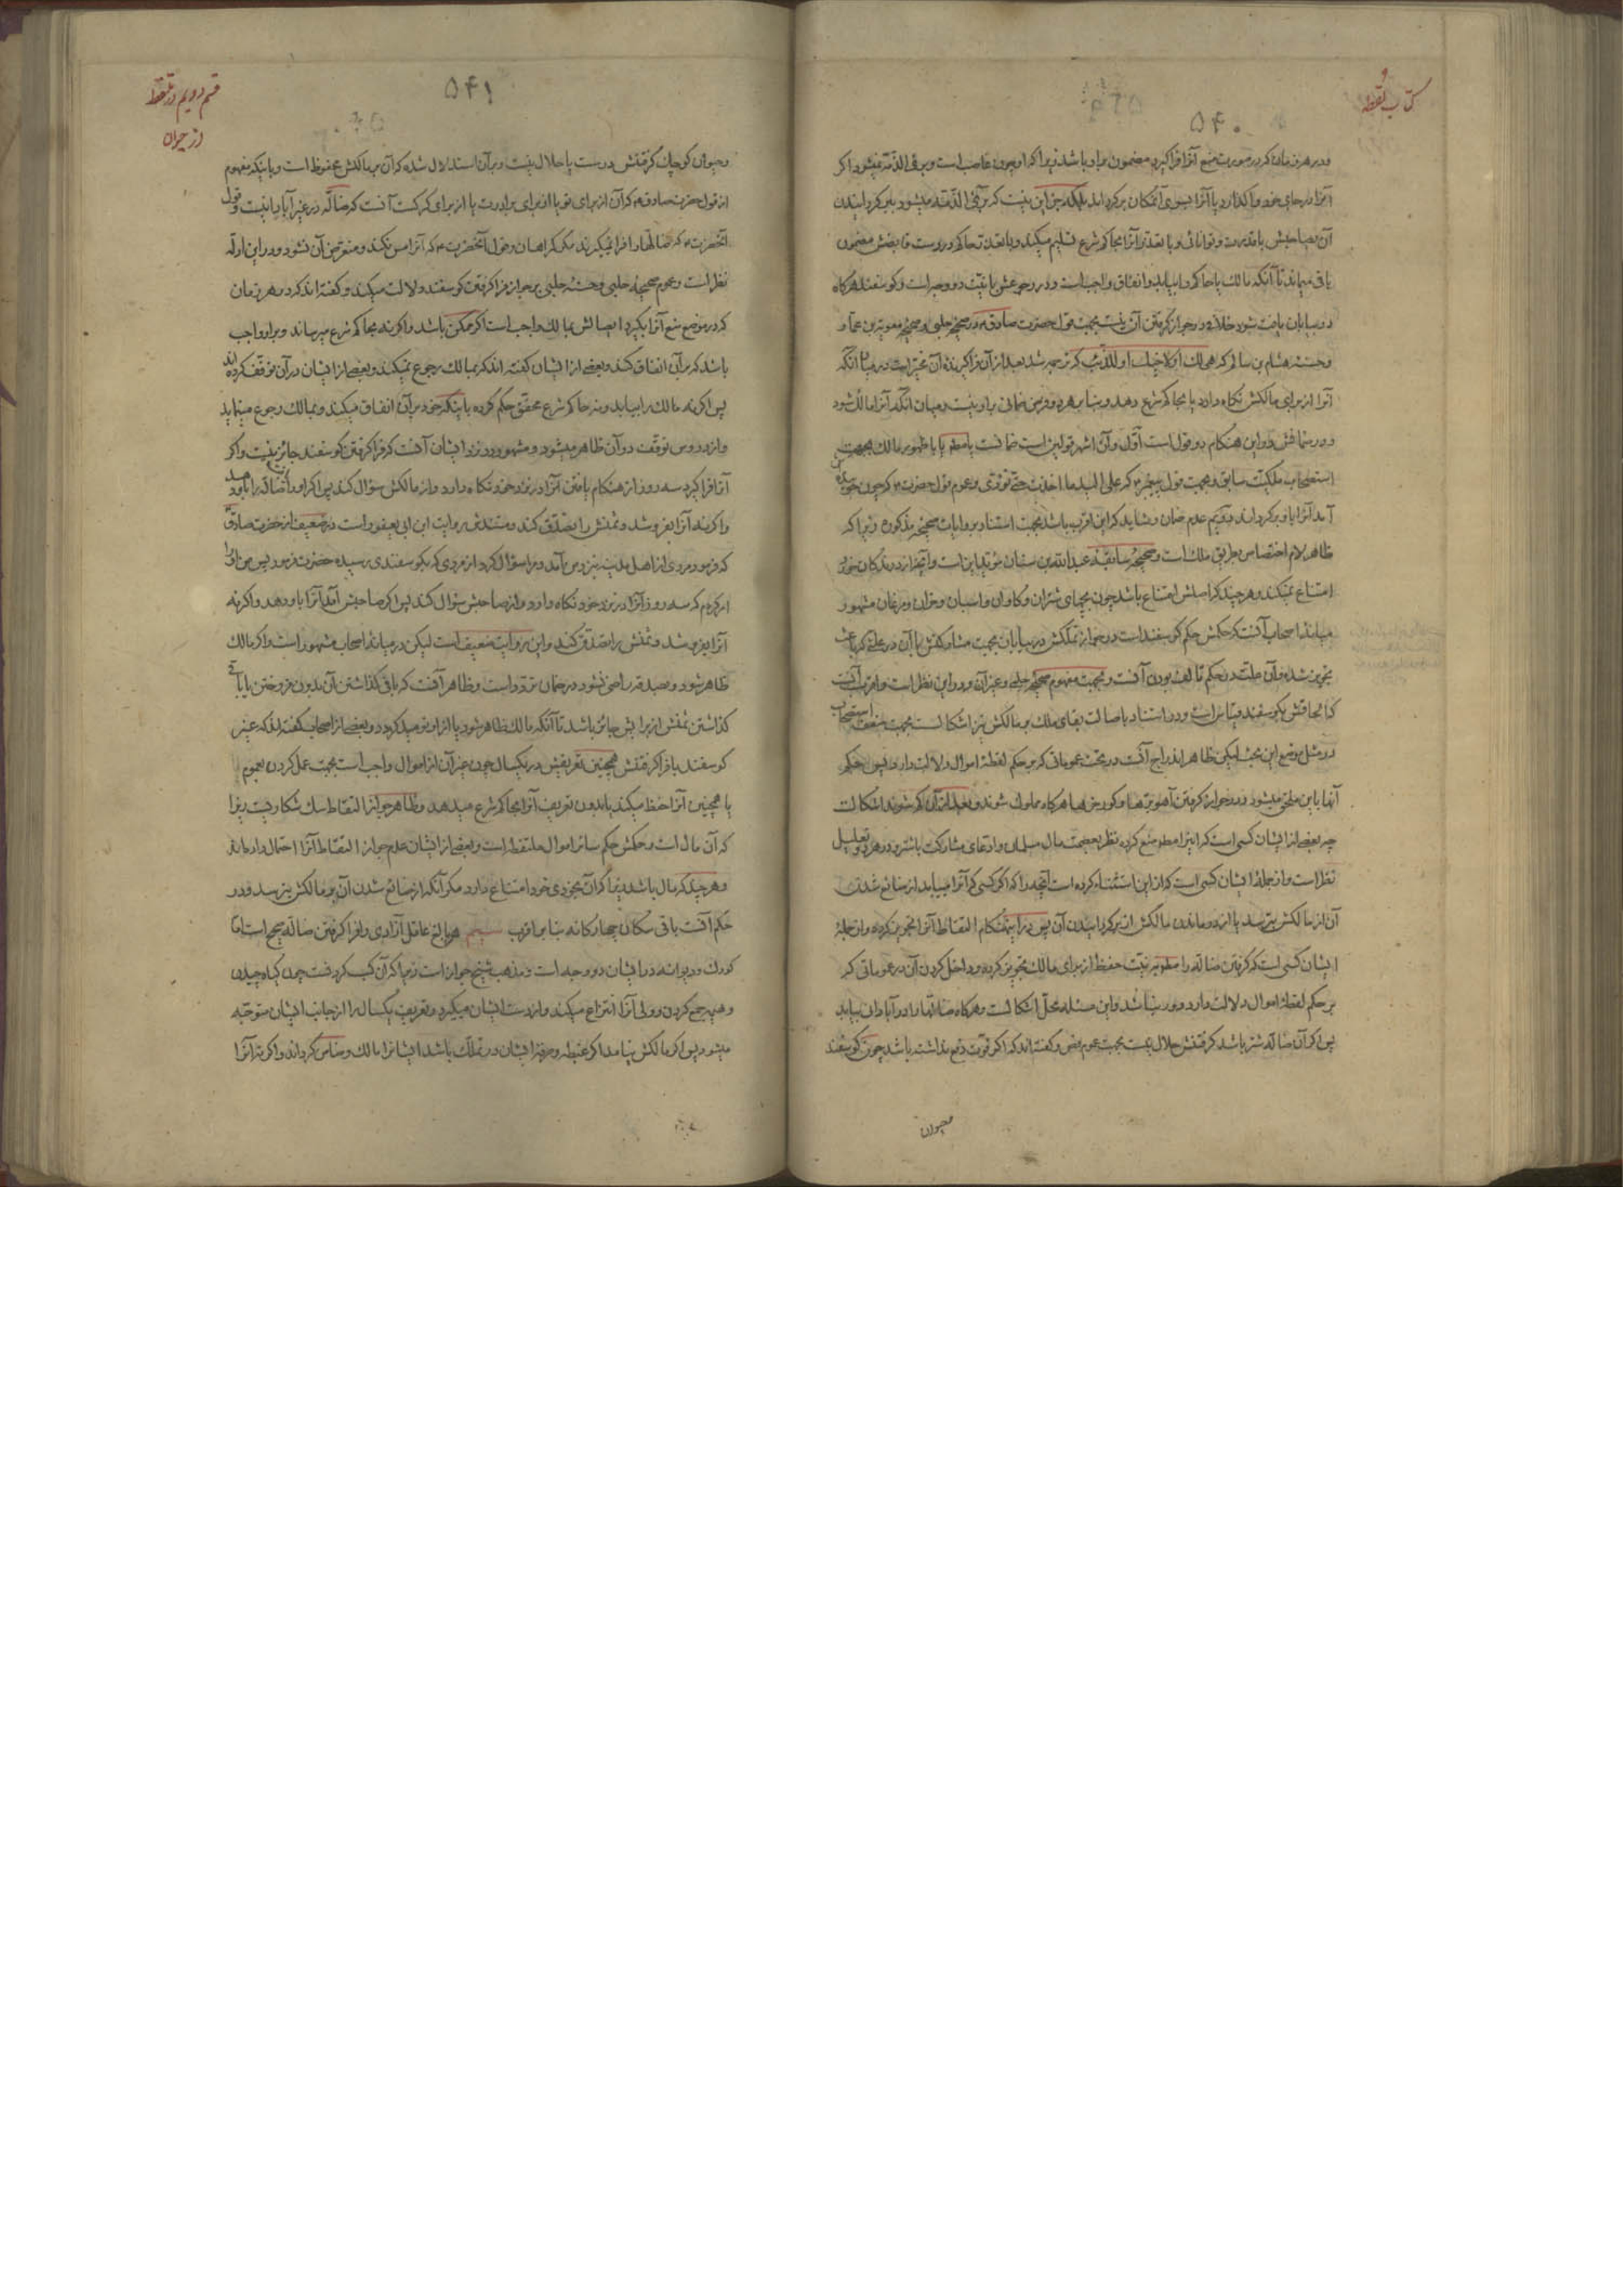 كتاب لقطه
۵۴۰
ودر هر زمان كه در صورت منع آنرا فرا كيرد مضمون براو باشد زيرا كه او چون غاصب است وبرئ الذّمّه نميشود اكر
آنرا در جاى خود واكذارد يا آنرا بسوى آنمكان بركرداند بلكه جز اين نيست كه برئ الذّمّه ميشود بابركردانيدن
آن بصاحبش با قدرت وتوانائى وبا تعذّر آنرا بحاكم شرع تسليم ميكند وبا تعذّر حاكم در دست قابضش مضمون
باقى ميماند تا آنكه مالك يا حاكم را بيابد وانفاق واجب است ودر رجوعش با نيّت دو وجه است وكوسفند هركاه
در بيابان يافت شود خلافى در جواز كرفتن آن نيست بجهت قول حضرت صادق ع در صحيحۀ حلبى وصحيحۀ معوية بن عمّار
وحسنۀ هشام بن سالم كه هى لك او لاخيك او للذّئب كه ترجمه شد بعد از آن فرا كيرنده آن مخيّر است در ميان آنكه
آنرا از براى مالكش نكاه دارد يا بحاكم شرع دهد وبنا بر هر دو فرض ضمانى براو نيست وميان آنكه آنرا مالك شود
ودر ضمانش در اين هنكام دو قول است اوّل وآن اشهر قولين است ضمانست يا مطلقا يا با ظهور مالك بجهت
استصحاب ملكيّت سابق وبجهت قول پيغمبر ص كه على اليد ما اخذت حتّى تؤدّى وعموم قول حضرت ع كه چون جوينده آن
آمد آنرا باو بركرداند دويّم عدم ضمان وشايد كه اين اقرب باشد بجهت استناد بروايات صحيحۀ مذكوره زيرا كه
ظاهر لام اختصاص بطريق ملك است وصحيحۀ سابقۀ عبد الله بن سنان مؤيّد اين است وآنچه از درندكان خورد
امتناع نميكند وهر چند كه اصلش امتناع باشد چون بچهاى شتران وكاوان واسبان وخران ومرغان مشهور
ميانۀ اصحاب آنست كه حكمش حكم كوسفند است در جواز تملّكش در بيابان بجهت مشاركتش با آن در علّتى كه باعث
تجويز شده وآن علّت در حكم تالف بودن آنست وبجهت مفهوم صحيحۀ حلبى وغير آن ودر اين نظر است واقرب آنست
كه الحاقش بكوسفند قياس است ودر استناد باصالت بقاى ملك بر مالكش نيز اشكالست بجهت ضعف استصحاب
در مثل موضع اين بحث ليكن ظاهر اندراج آنست در تحت عموماتى كه بر حكم لقطۀ اموال دلالت دارد پس حكم
آنها باين ملحق ميشود ودر جواز كرفتن آهو برها وكورخرها هركاه مملوك شوند وبعد از آن كم شوند اشكالست
چه بعضى از ايشان كسى است كه اينرا مطلقا منع كرده نظر بعصمت مال مسلمان وادّعاى مشاركت باشتر ودر هر دو تعليل
نظر است واز جملۀ ايشان كسى است كه از اين استثناء كرده است آنچه را كه اكر كسى كه آنرا ميبابد از ضائع شدن
آن از مالكش بترسد يا از درماندن مالكش از بركردانيدن آن پس در اينهنكام التقاط آنرا تجويز كرده واز جملۀ
ايشان كسى است كه كرفتن ضالّه را مطلقا به نيّت حفظ از براى مالك تجويز كرده وداخل كردن آن در عموماتى كه
بر حكم لقطۀ اموال دلالت دارد دور نباشد واين مسئله محلّ اشكالست وهركاه ضالّه را در آبادانى بيابد
پس اكر آن ضالّه شتر باشد كرفتنش حلال نيست بجهت عموم نص وكفته اند كه اكر قوّت دفع نداشته باشد چون كوسفند
وحيوان
قسم دويم در ملتقط
از حيوان
۵۴۱
وحيوان كوچك كرفتنش درست يا حلال نيست وبر آن استدلال شده كه آن بر مالكش محفوظ است وباينكه مفهوم
از قول حضرت صادق ع كه آن از براى تو يا از براى برادرت يا از براى كركست آنست كه ضالّه در غير آباد انيست وقول
آنحضرت ع كه ضالّها را فرا نميكيرند مكر كمراهان وقول آنحضرت ع كه آنرا مس نكند ومتعرّض آن نشود ودر اين ادلّه
نظر است وعموم صحيحۀ حلبى وحسنۀ حلبى بر جواز فرا كرفتن كوسفند دلالت ميكند وكفته اند كه در هر زمان
كه در موضع منع آنرا بكيرد ايصالش بمالك واجب است اكر ممكن باشد واكر نه بحاكم شرع ميرساند وبراو واجب
باشد كه بر آن انفاق كند وبعضى از ايشان كفته اند كه بمالك رجوع نميكند وبعضى از ايشان در آن توقّف كرده اند
پس اكر نه مالك را بيابد ونه حاكم شرع محقّق حكم كرده باينكه خود بر آن انفاق ميكند وبمالك رجوع مينمايد
واز دروس توقّف در آن ظاهر ميشود ومشهور در نزد ايشان آنست كه فرا كرفتن كوسفند جائز نيست واكر
آنرا فرا كيرد سه روز از هنكام يافتن آنرا در نزد خود نكاه دارد واز مالكش سؤال كند پس اكر او را يافت آن ضالّه را باو دهد
واكر نه آنرا بفروشد وثمنش را تصدّق كند ومستندش روايت ابن ابى يعفور است در ضعيف از حضرت صادق ع
كه فرمود مردى از اهل مدينه نزد من آمد ومرا سؤال كرد از مردى كه بكوسفندى برسيده حضرت فرمود پس من او را
امر كردم كه سه روز آنرا در نزد خود نكاه دارد واز صاحبش سؤال كند پس اكر صاحبش آمد آنرا باو دهد واكر نه
آنرا بفروشد وثمنش را تصدّق كند واين روايت ضعيف است ليكن در ميانۀ اصحاب مشهور است واكر مالك
ظاهر شود وبصدقه راضى نشود در ضمان تردّد است وظاهر آنست كه باقى كذاشتن آن بدون فروختن يا باقى
كذاشتن ثمنش از برايش جائز باشد تا آنكه مالك ظاهر شود يا از او نوميد كردد وبعضى از اصحاب كفته اند كه غير
كوسفند با فرا كرفتنش همچنين تعريفش در يكسال چون غير آن از اموال واجب است بجهت عمل كردن بعموم
يا همچنين آنرا حفظ ميكند يا بدون تعريف آنرا بحاكم شرع ميدهد وظاهر جواز التقاط سك شكاريست زيرا
كه آن مال است وحكمش حكم سائر اموال ملتقطه است وبعضى از ايشان عدم جواز التقاط آنرا احتمال داده اند
وهر چند كه مال باشد زيرا كه آن بخودى خود امتناع دارد مكر آنكه از ضائع شدن آن بر مالكش بترسد ودر
حكم آنست باقى سكان چهاركانه بنا بر اقرب سيم هر بالغ عاقل آزادى را فرا كرفتن ضالّه صحيح است امّا
كودك وديوانه در ايشان دو وجه است ومذهب شيخ جواز است زيرا كه آن كسب كردنست چون كياه چيدن
وهيمه جمع كردن وولى آنرا انتزاع ميكند واز دست ايشان ميكيرد وتعريف يكسال را از جانب ايشان متوجّه
ميشود پس اكر مالكش نيامد اكر غبطه وصرفۀ ايشان در تملّك باشد ايشانرا مالك وضامن كرداند واكر نه آنرا